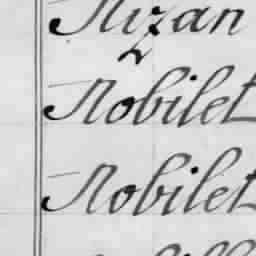 Nizan
Nobilet
Nobilet